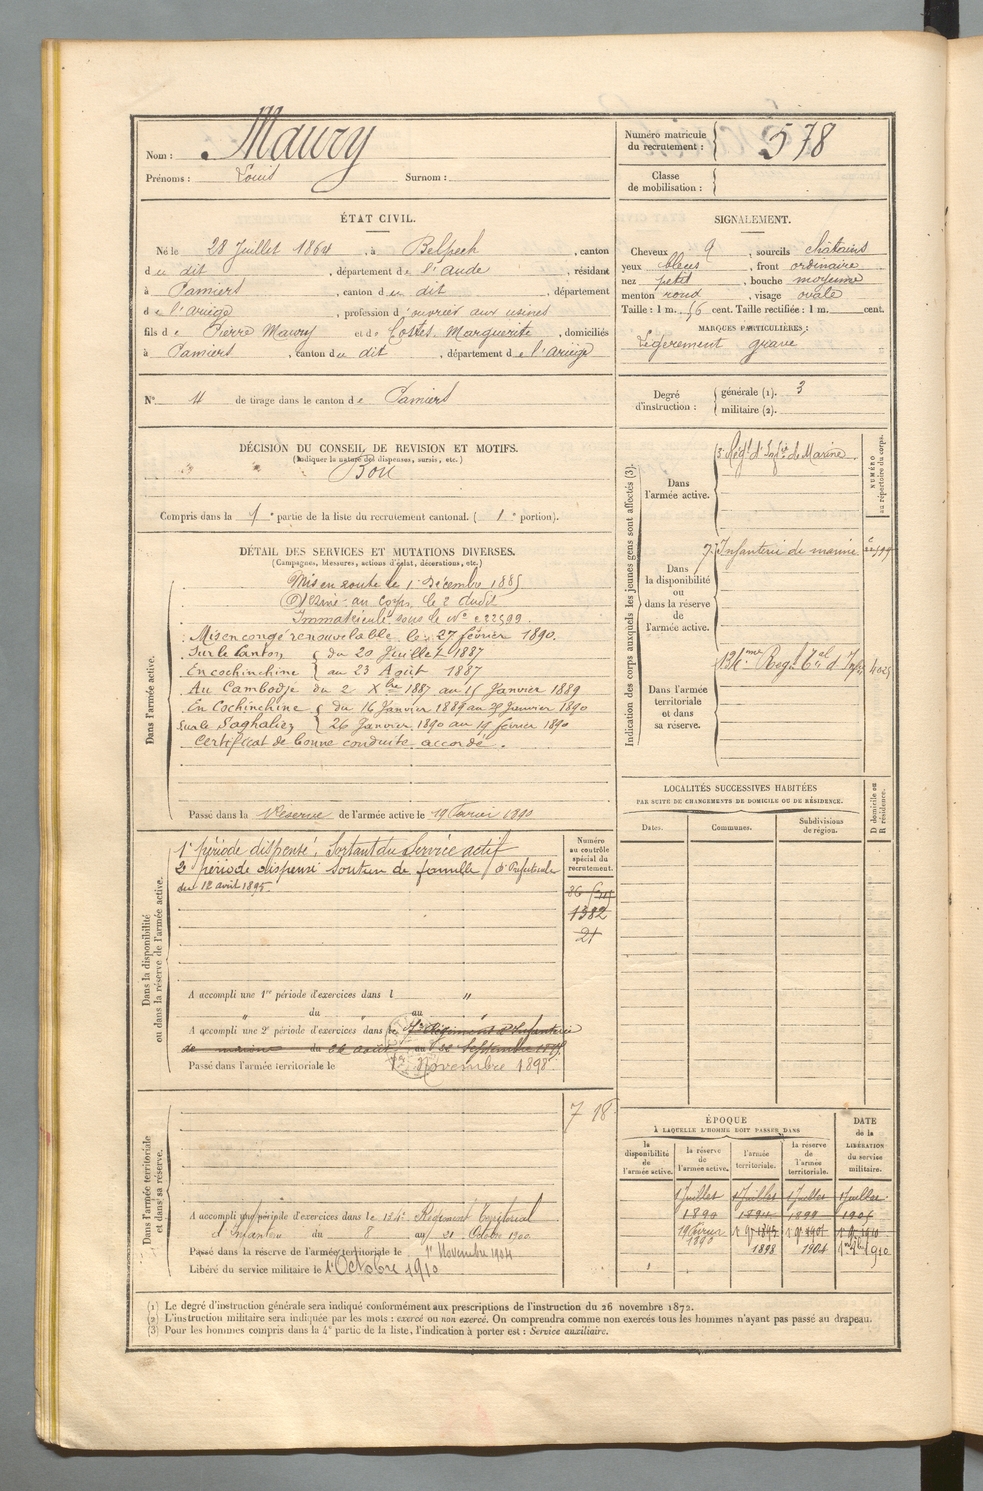 Nom : Maury
Prénoms : Louis Surnom :
Numéro matricule du recrutement : 578
Classe de mobilisation :
ÉTAT CIVIL.
Né le 28 Juillet 1864, à Belpech, canton
du dit, département de l'aude, résidant
à Pamiers, canton du dit, département
de l'ariège, profession d'ouvrier aux usines
fils de Pierre Maury et de Costes Marguerite, domiciliés
à Pamiers, canton du dit, département de l'ariège
SIGNALEMENT.
Cheveux d, sourcils châtains
yeux bleus, front ordinaire
nez petit, bouche moyenne
menton rond, visage ovale
Taille : 1 m. 56 cent. Taille rectifiée : 1 m. cent.
MARQUES PARTICULIÈRES :
Légèrement gravé
N° 4 de tirage dans le canton de Pamiers
Degré d'instruction :
générale (1). 3
militaire (2).
DÉCISION DU CONSEIL DE REVISION ET MOTIFS.
(Indiquer la nature des dispenses, sursis, etc.)
Bon
Compris dans la 1e partie de la liste du recrutement cantonal. ( 1e portion).
DÉTAIL DES SERVICES ET MUTATIONS DIVERSES.
(Campagnes, blessures, actions d'éclat, décorations, etc.)
Dans l'armée active.
Mis en route le 1 Décembre 1885
Arrivé au Corps le 2 dudit
Immatriculé sous le N° 22599
Mis en congé renouvelable le 27 février 1890.
Sur le Canton { du 20 Juillet 1887
En cochinchine } au 23 Août 1887
Au Cambodje du 2 Xbre 1887 au 15 Janvier 1889
En Cochinchine { du 16 Janvier 1889 au 25 Janvier 1890
Sur le Saghalien { 26 Janvier 1890 au 19 février 1890
Certificat de bonne conduite accordé.
Passé dans la Réserve de l'armée active le 19 Février 1890
Indication des corps auxquels les jeunes gens sont affectés (3).
NUMÉRO au répertoire du corps.
Dans l'armée active.
3e Régt d'Infie de Marine
Dans la disponibilité ou dans la réserve de l'armée active.
7e Infanterie de marine
Dans l'armée territoriale et dans sa réserve.
134me Regt Terial d'Infie 4025
LOCALITÉS SUCCESSIVES HABITÉES
PAR SUITE DE CHANGEMENTS DE DOMICILE OU DE RÉSIDENCE.
Dates. Communes. Subdivisions de région. D domicile ou R résidence.
Dans la disponibilité ou dans la réserve de l'armée active.
Numéro au contrôle spécial du recrutement.
1e période dispensé, Sortant du Service actif
2e période dispensé soutien de famille / Don Préfectorale
du 12 avril 1895.
1382
21
A accompli une 1re période d'exercices dans l "
" du " au "
A accompli une 2e période d'exercices dans le 7e Régiment d'Infanterie
de marine du 26 août au 22 Septembre 1895
Passé dans l'armée territoriale le 1er Novembre 1898
Dans l'armée territoriale et dans sa réserve.
7 18
A accompli une période d'exercices dans le 134e Régiment Territorial
d'Infanterie du 8 au 21 Octobre 1900
Passé dans la réserve de l'armée territoriale le 1er Novembre 1904
Libéré du service militaire le 1er Octobre 1910
ÉPOQUE
À LAQUELLE L'HOMME DOIT PASSER DANS
DATE de la LIBÉRATION du service militaire.
la disponibilité de l'armée active. la réserve de l'armée active. l'armée territoriale. la réserve de l'armée territoriale.
1 Juillet 1 Juillet 1 Juillet 1 Juillet
1890 1894 1899 1905
19 février 1890 1898 1904 1910
(1) Le degré d'instruction générale sera indiqué conformément aux prescriptions de l'instruction du 26 novembre 1872.
(2) L'instruction militaire sera indiquée par les mots : exercé ou non exercé. On comprendra comme non exercés tous les hommes n'ayant pas passé au drapeau.
(3) Pour les hommes compris dans la 4e partie de la liste, l'indication à porter est : Service auxiliaire.